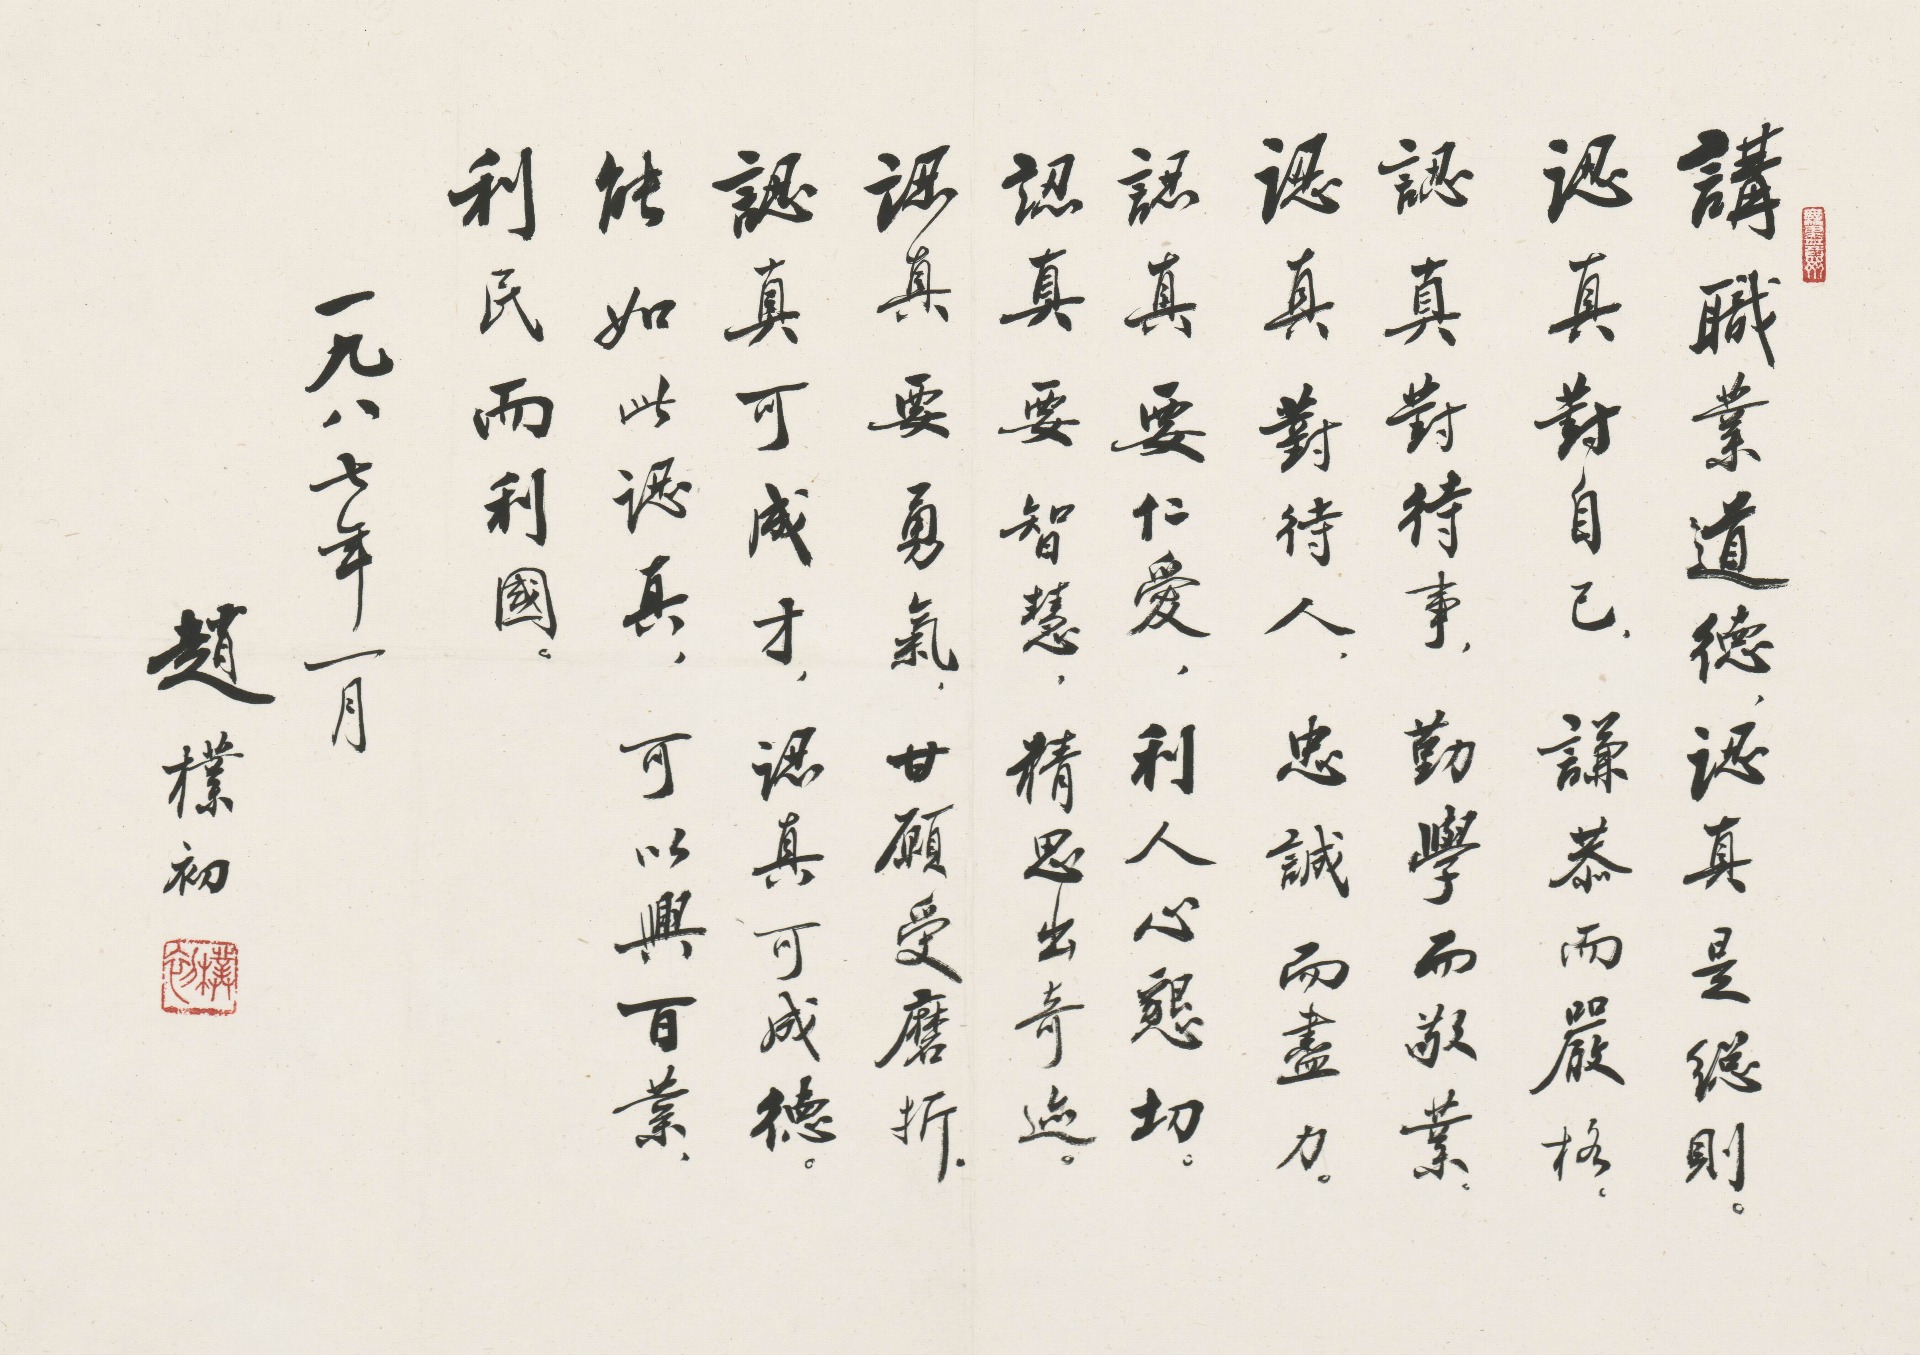 講職業道德，認真是總則。
認真對自己，謙恭而嚴格。
認真對待事，勤學而敬業。
認真對待人，忠誠而盡力。
認真要仁愛，利人心懇切。
認真要智慧，精思出奇迹。
認真要勇氣，甘願受磨折。
認真可成才，認真可成德。
能如此認真，可以興百業，
利民而利國。
一九八七年一月
趙樸初
樸初